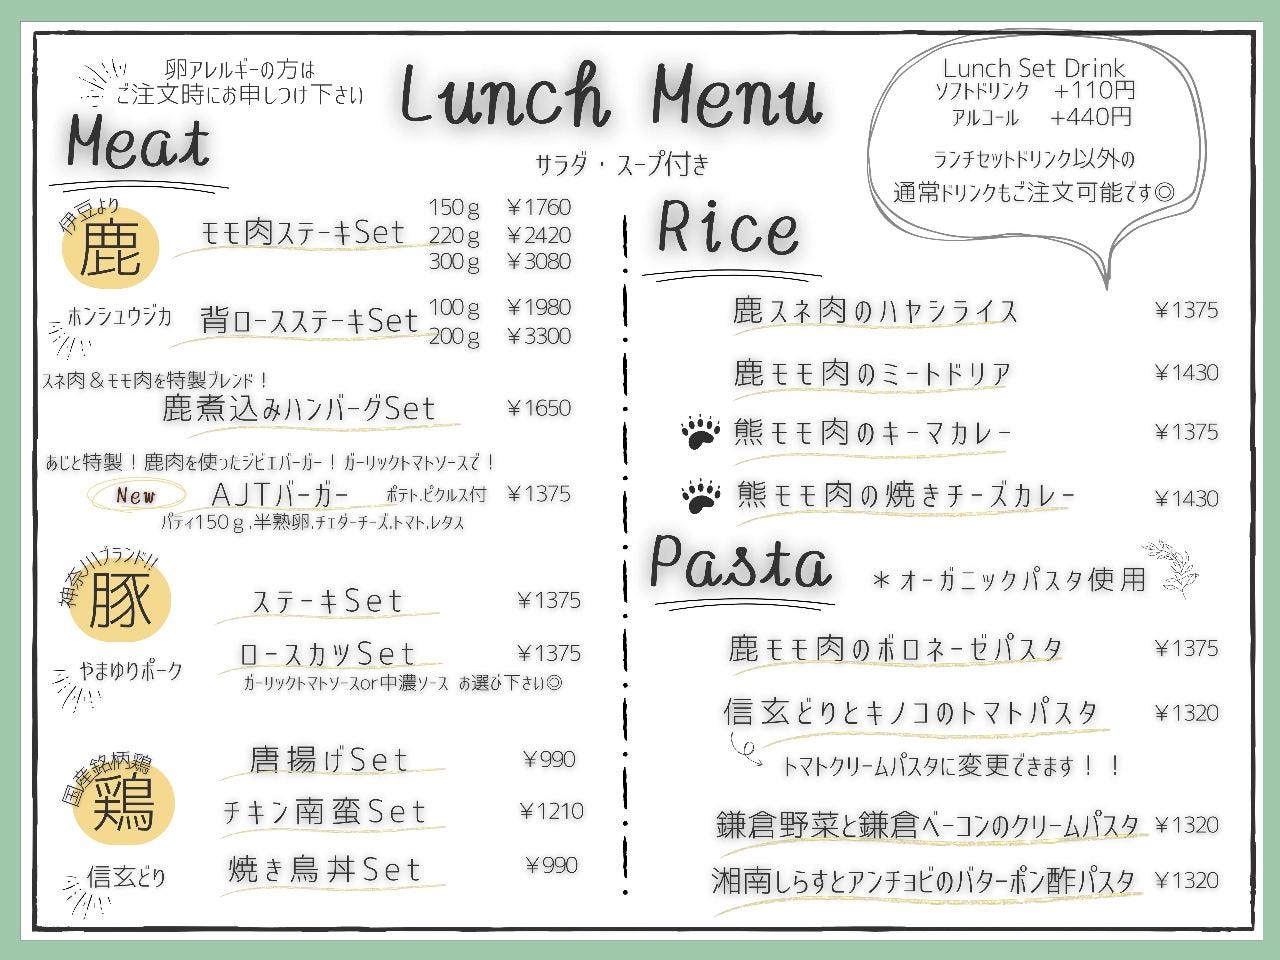 卵アレルギーの方は
ご注文時にお申しつけ下さい
Lunch Menu
サラダ・スープ付き
Lunch Set Drink
ソフトドリンク +110円
アルコール +440円
ランチセットドリンク以外の
通常ドリンクもご注文可能です◎
Meat
伊豆より
鹿
ホンシュウジカ
モモ肉ステーキSet
150g ¥1760
220g ¥2420
300g ¥3080
背ロースステーキSet
100g ¥1980
200g ¥3300
スネ肉&モモ肉を特製ブレンド!
鹿煮込みハンバーグSet ¥1650
あじと特製!鹿肉を使ったジビエバーガー!ガーリックトマトソースで!
New AJTバーガー ポテト.ピクルス付 ¥1375
パティ150g.半熟卵.チェダーチーズ.トマト.レタス
神奈川ブランド!!
豚
やまゆりポーク
ステーキSet ¥1375
ロースカツSet ¥1375
ガーリックトマトソースor中濃ソース お選び下さい◎
国産銘柄鶏
鶏
信玄どり
唐揚げSet ¥990
チキン南蛮Set ¥1210
焼き鳥丼Set ¥990
Rice
鹿スネ肉のハヤシライス ¥1375
鹿モモ肉のミートドリア ¥1430
熊モモ肉のキーマカレー ¥1375
熊モモ肉の焼きチーズカレー ¥1430
Pasta
*オーガニックパスタ使用
鹿モモ肉のボロネーゼパスタ ¥1375
信玄どりとキノコのトマトパスタ ¥1320
トマトクリームパスタに変更できます!!
鎌倉野菜と鎌倉ベーコンのクリームパスタ ¥1320
湘南しらすとアンチョビのバターポン酢パスタ ¥1320